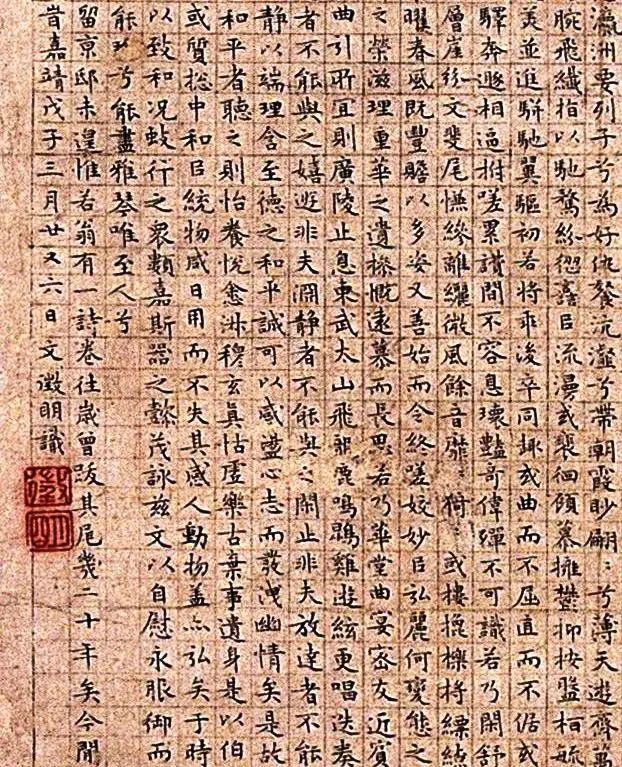 瀛洲要列子兮為好仇餐沆瀣兮帶朝霞眇翩〻兮薄天遊齊萬
腕飛纖指以馳騖紛譶㠯流漫或裴徊顧慕擁鬱抑按盤桓毓
美並進駢馳翼驅初若將乖後卒同趣或曲而不屈直而不倨或
驛奔遯相逼拊嗟累讚間不容息瓌豔奇偉殫不可識若乃閑舒
層崖紛文斐尾慊縿離纚微風餘音靡〻猗〻或摟櫟捋縹繚
曜春風既豐贍以多姿又善始而令終嗟姣妙㠯弘麗何變態之
之榮滋理重華之遺操慨遠慕而長思若乃華堂曲宴密友近賓
曲引所宜則廣陵止息東武太山飛龍鹿鳴鵾雞遊絃更唱迭奏
者不能與之嬉遊非夫淵靜者不能與之閑止非夫放達者不能
靜以端理含至德之和平誠可以感盪心志而發洩幽情矣是故
和平者聽之則怡養悅愈淑穆玄真恬虛樂古棄事遺身是以伯
或質総中和㠯統物咸日用而不失其感人動物蓋亦弘矣于時
以致和況蚑行之眾類嘉斯器之懿茂詠茲文以自慰永服御而
能珍兮能盡雅琴唯至人兮
留京邸未遑惟若翁有一詩卷往歲曾跋其尾幾二十年矣今閒
旹嘉靖戊子三月廿又六日文徵明識
徵明